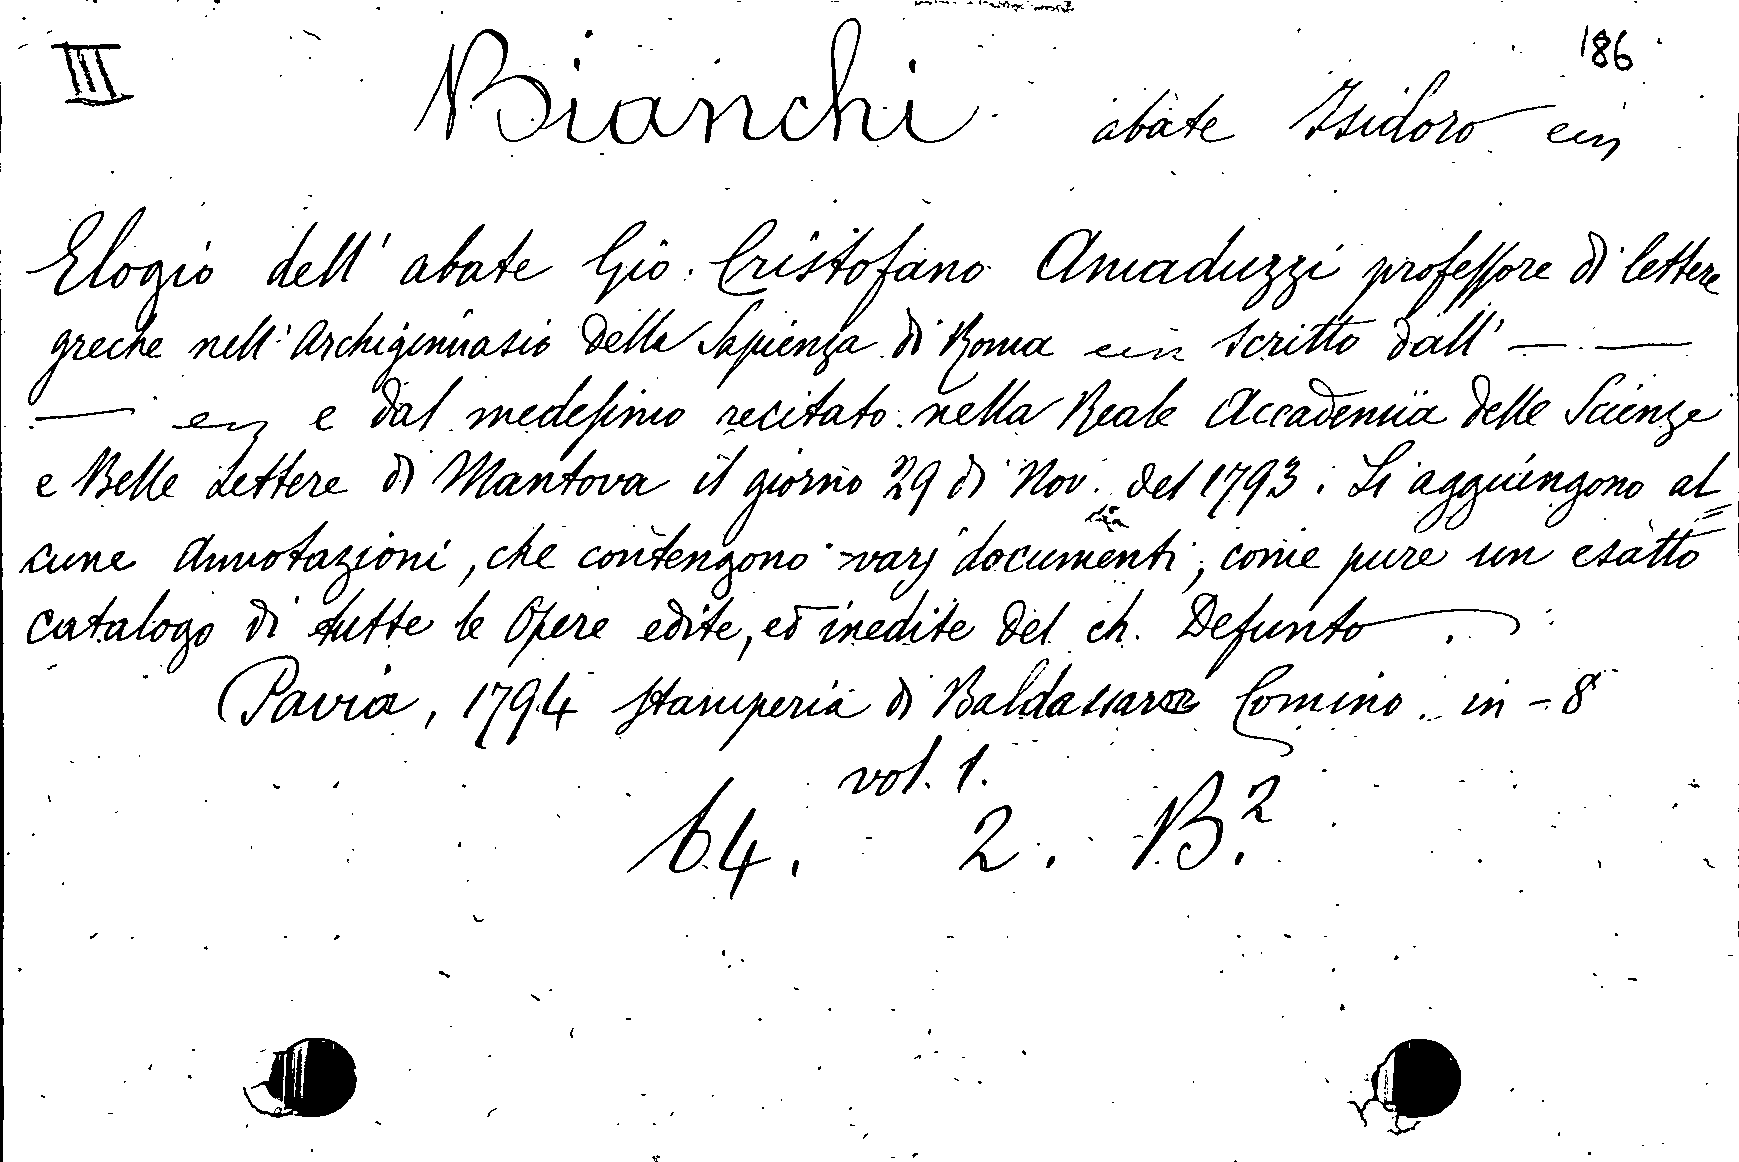 III 186
Bianchi abate Isidoro
Elogio dell' abate Gio. Cristofano Amaduzzi professore di lettere
greche nell' Archiginnasio della Sapienza di Roma scritto dall' — —
— e dal medesimo recitato nella Reale Accademia delle Scienze
e Belle Lettere di Mantova il giorno 29 di Nov. del 1793. Si aggiungono al=
cune Annotazioni, che contengono varj documenti, come pure un esatto
catalogo di tutte le Opere edite, ed inedite del ch. Defunto.
Pavia, 1794 stamperia di Baldassare Comino in-8
vol. 1.
64. 2. B.2